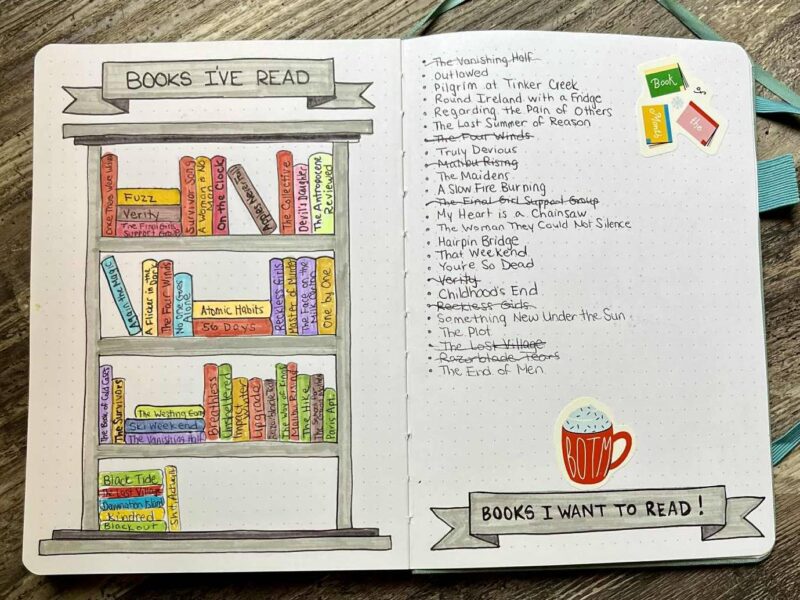 BOOKS I'VE READ
Once There Were Wolves
Fuzz
Verity
The Final Girl
Support Group
Survivor Song
A Woman is No
Man
On the Clock
Apples Never Fall
The Collective
Devil's Daughter
The Antropocene
Reviewed
Again the Magic
A Flicker in the
Dark
The Four Winds
No one Goes
Alone
Atomic Habits
56 Days
Reckless Girls
Master of Murder
The Face on the
Milk Carton
One by One
The Book of Cold Cases
The Survivors
The Westing Game
Ski Weekend
The Vanishing Half
Breathless
Unsheltered
Impact Winter
Upgrade
Razorblade Tears
Malibu Rising
The Hike
Paris Apt.
Black Tide
The Lost Village
Damnation Island
Kindred
Blackout
Shit, Actually
The Vanishing Half
Outlawed
Pilgrim at Tinker Creek
Round Ireland with a Fridge
Regarding the Pain of Others
The Last Summer of Reason
The Four Winds
Truly Devious
Malibu Rising
The Maidens
A Slow Fire Burning
The Final Girl Support Group
My Heart is a Chainsaw
The Woman They Could Not Silence
Hairpin Bridge
That Weekend
You're So Dead
Verity
Childhood's End
Reckless Girls
Something New Under the Sun
The Plot
The Lost Village
Razorblade Tears
The End of Men
Book
of
the
Month
BOTM
BOOKS I WANT TO READ!